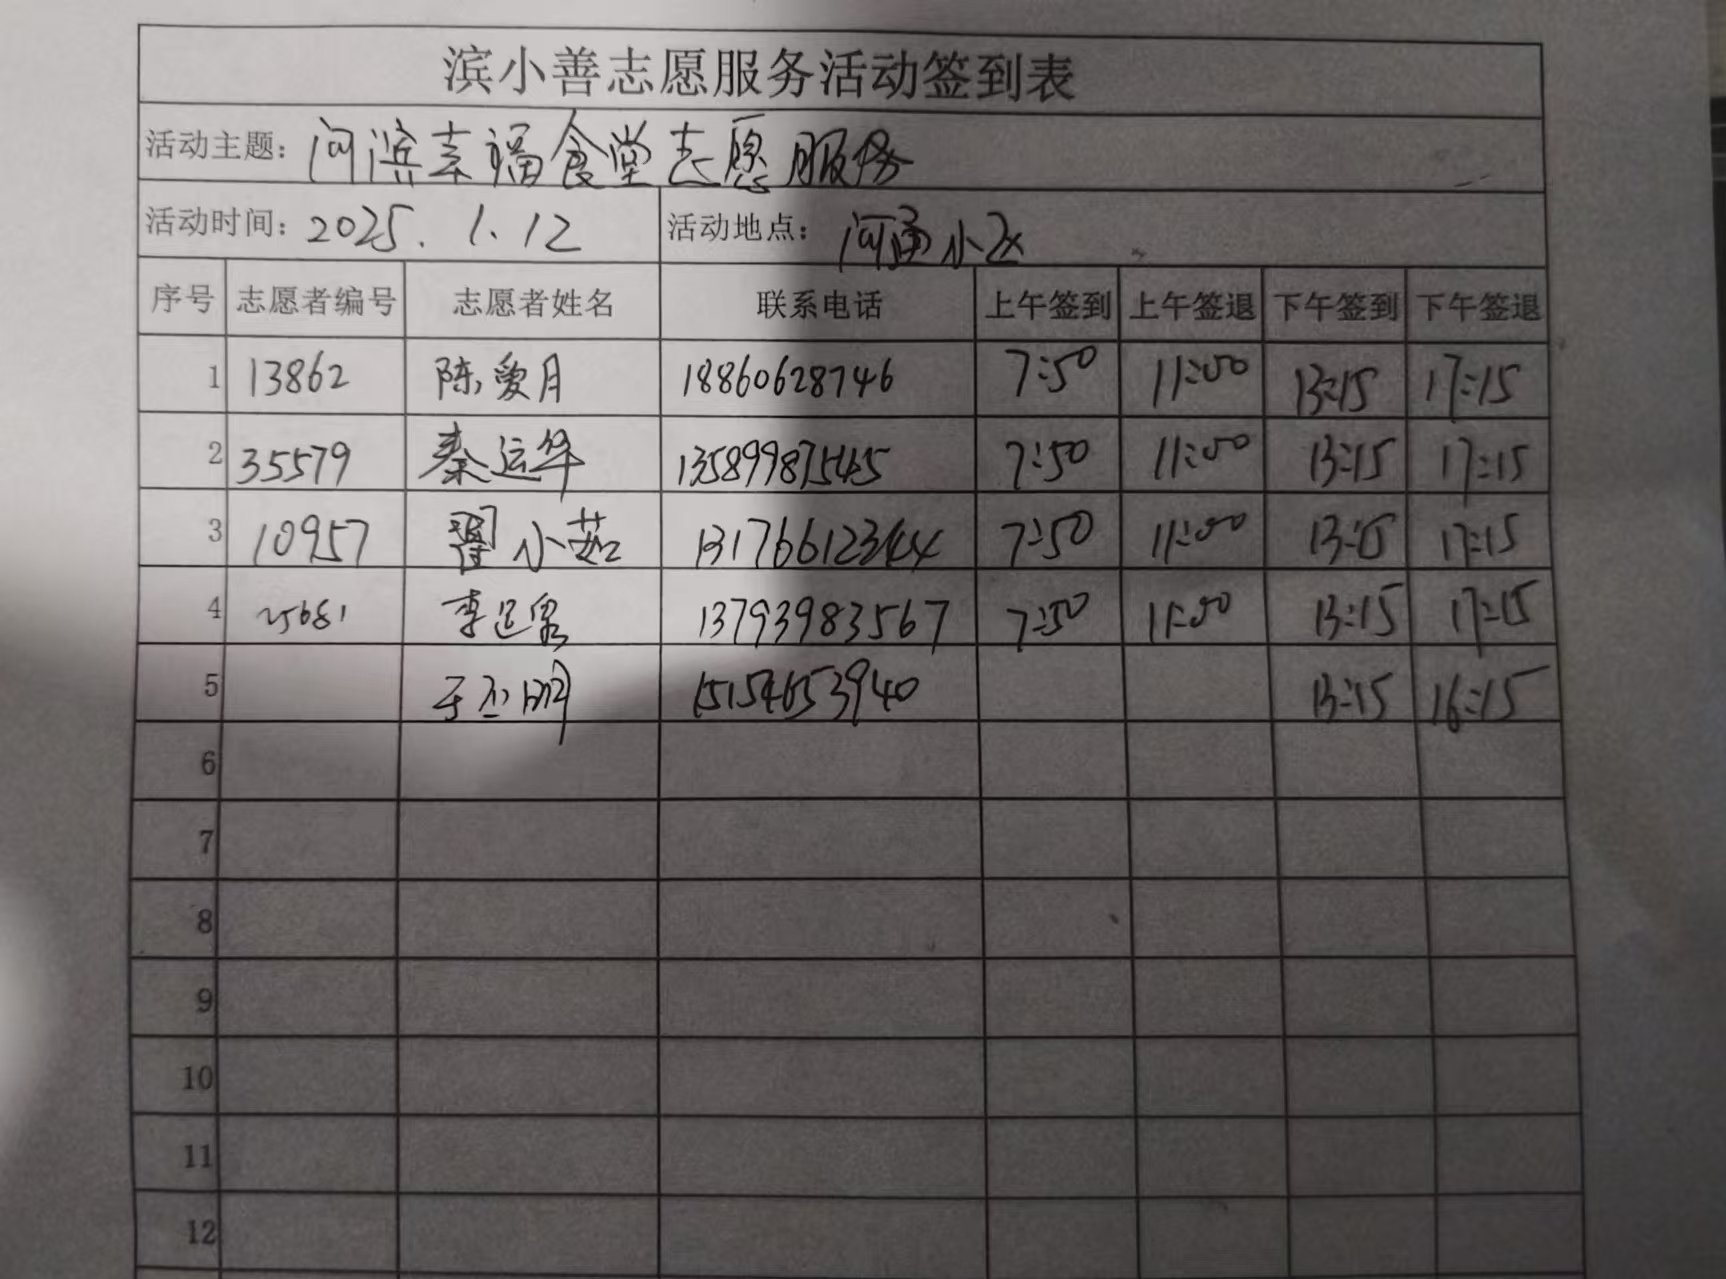 滨小善志愿服务活动签到表
活动主题: 河滨幸福食堂志愿服务
活动时间: 2025.1.12 活动地点: 河通小区
序号 志愿者编号 志愿者姓名 联系电话 上午签到 上午签退 下午签到 下午签退
1 13862 陈爱月 18860628746 7:50 11:00 13:15 17:15
2 35579 秦运华 13589987545 7:50 11:00 13:15 17:15
3 10957 翟小茹 13176612344 7:50 11:00 13:15 17:15
4 25681 李廷泉 13793983567 7:50 11:00 13:15 17:15
5 15154653940 13:15 16:15
6
7
8
9
10
11
12